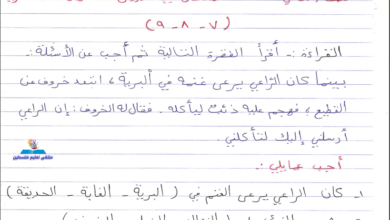 (٧ - ٨ - ٩)
القراءة :- أقرأ الفقرة التالية ثم أجب عن الأسئلة:
بينما كان الراعي يرعى غنمه في البرية، ابتعد خروف عن
القطيع، فهجم عليه ذئب ليأكله. فقال له الخروف: إن الراعي
أرسلني إليك لتأكلني.
أجب عما يلي:-
١- كان الراعي يرعى الغنم في (البرية - الغابة - الحديقة)
ملتقى تعليم فلسطين